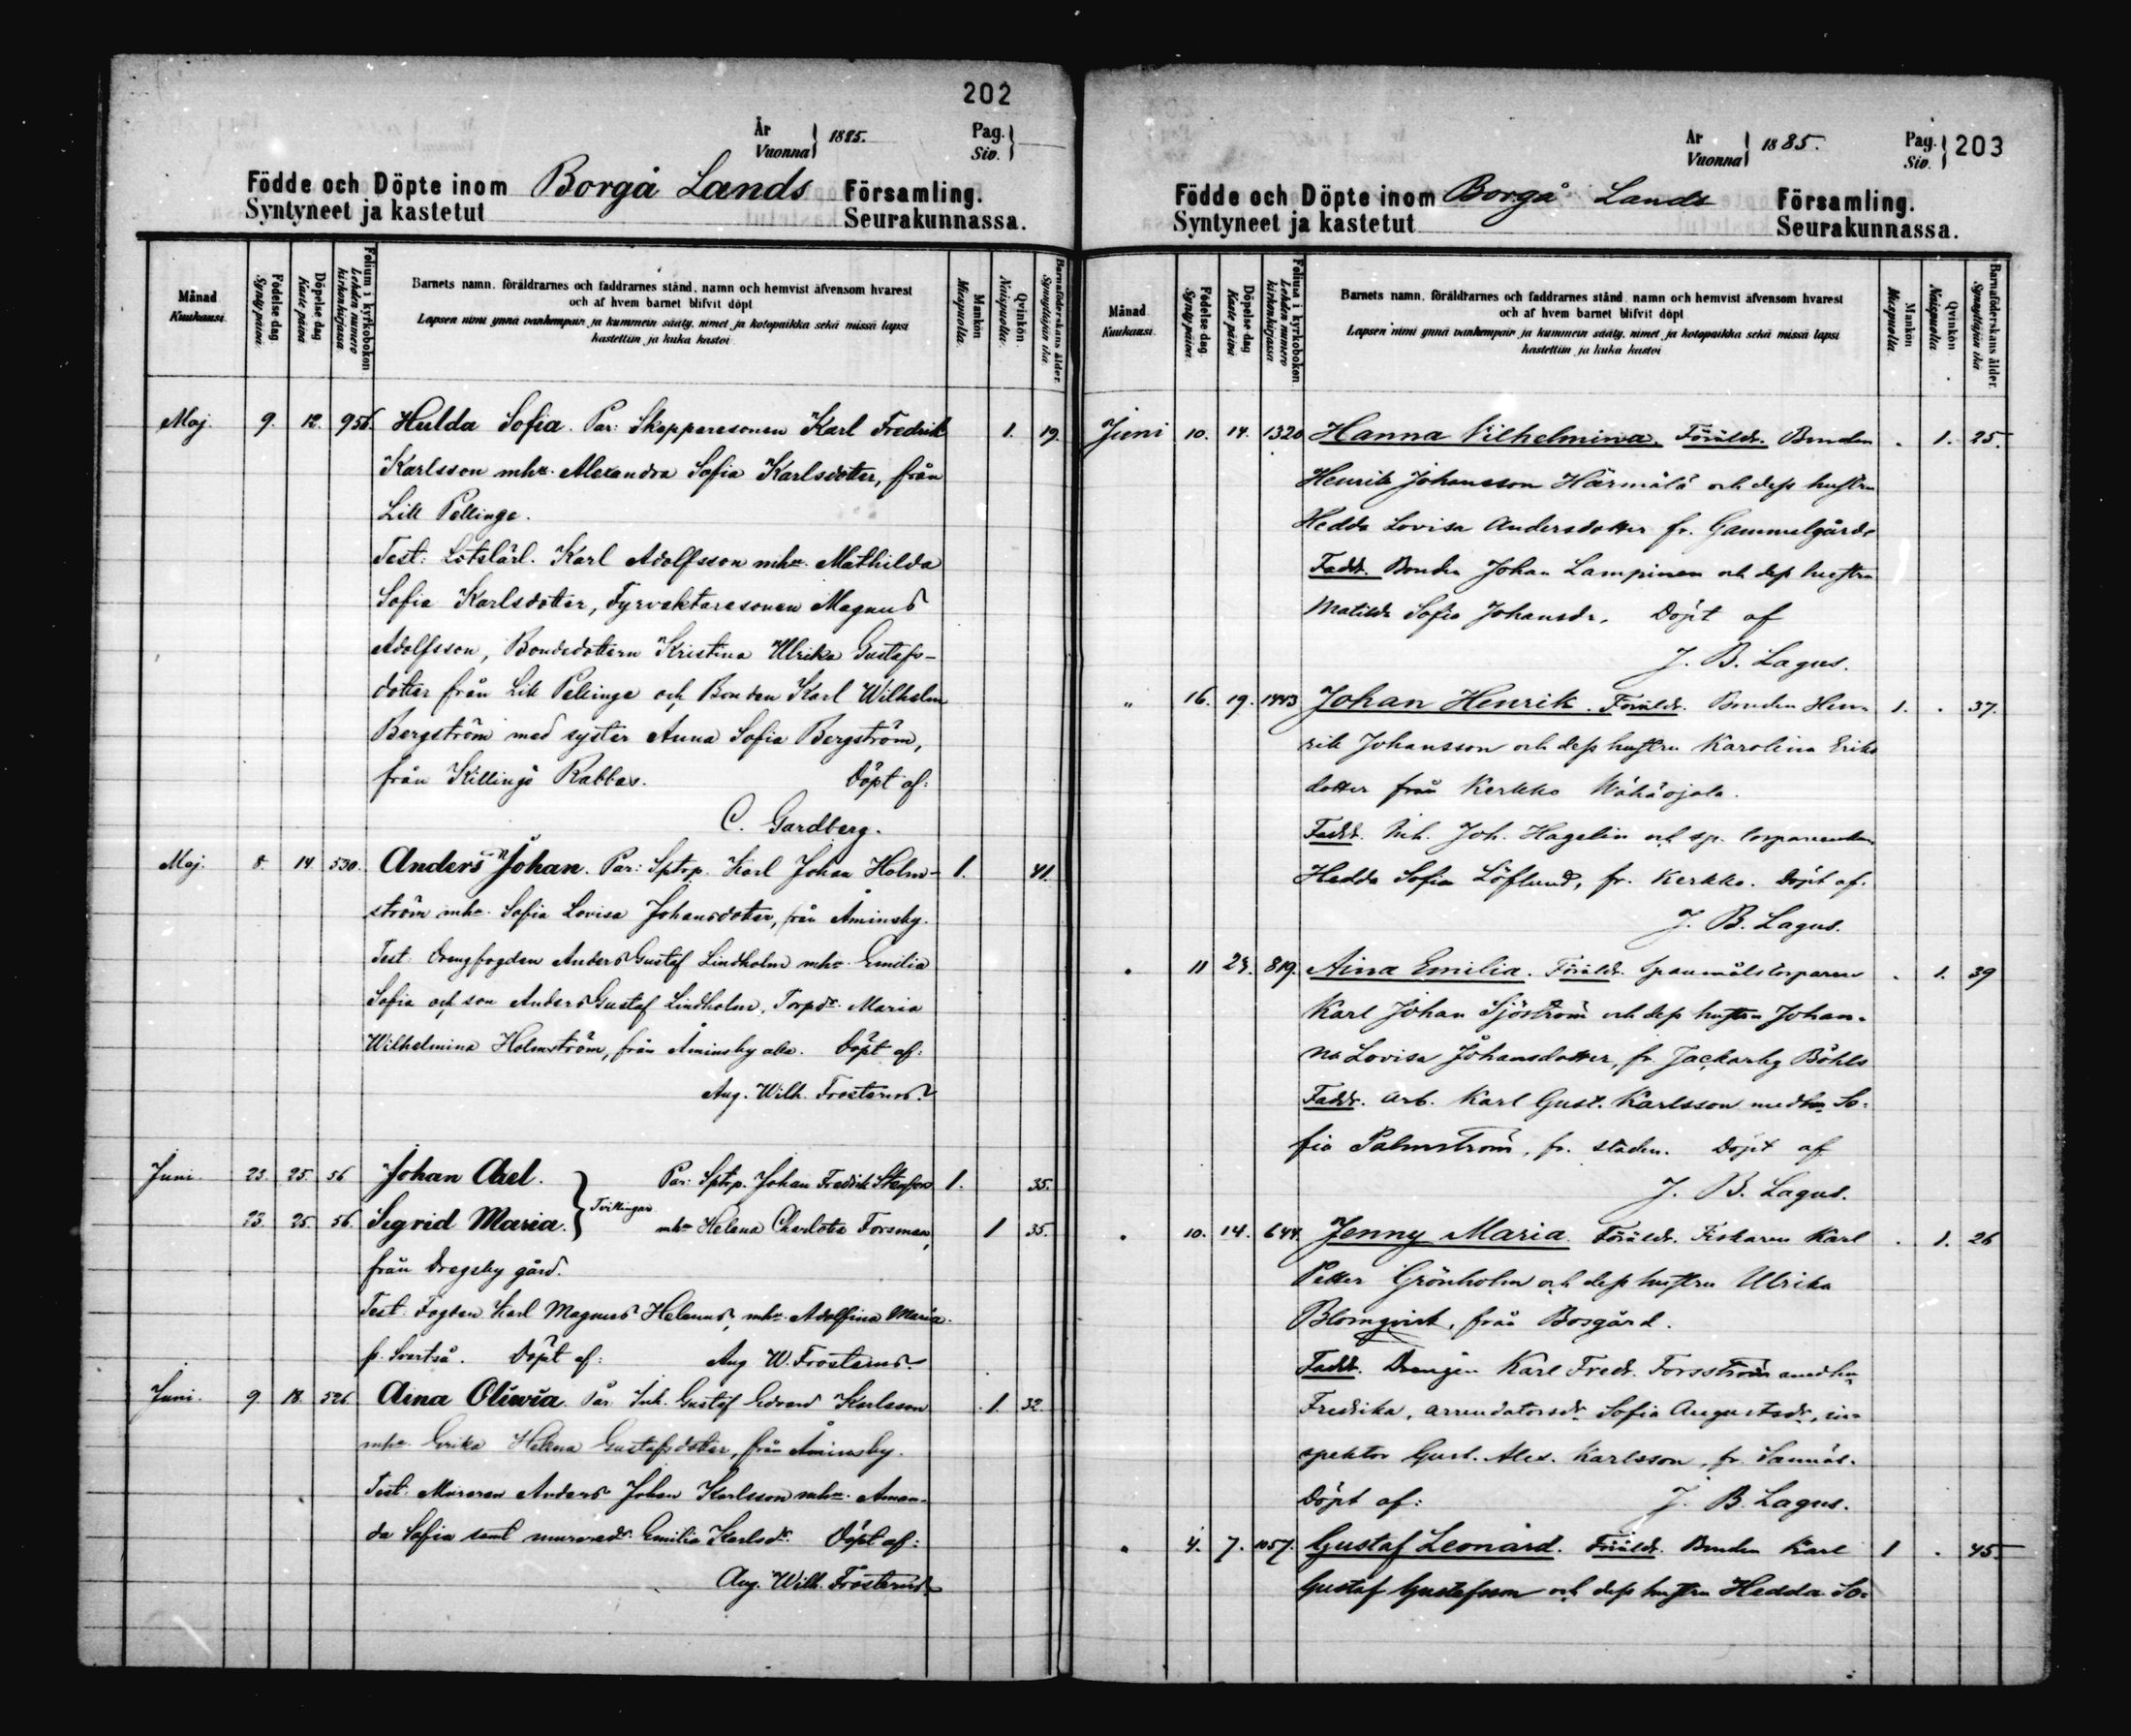 202
År
Vuonna
1885.
Pag.
Siv.
Födde och Döpte inom Borgå Lands Församling.
Syntyneet ja kastetut Seurakunnassa.
Månad
Kuukausi.
Födelse dag.
Synty päivä.
Döpelse dag
Kaste päivä
Folium i kyrkoboken
Lehden numero
kirkonkirjassa
Barnets namn, föräldrarnes och faddrarnes stånd, namn och hemvist äfvensom hvarest
och af hvem barnet blifvit döpt
Lapsen nimi ynnä vanhempain ja kummein sääty, nimet ja kotopaikka sekä missä lapsi
kastettiin ja kuka kastoi
Mankön
Miespuolia.
Qvinkön
Naispuolia.
Barnaföderskans ålder.
Synnyttäjän ikä
Maj. 9. 12. 956. Hulda Sofia. Par: Skepparesonen Karl Fredrik 1. 19.
Karlsson mhu. Alexandra Sofia Karlsdotter, från
Lill Pellinge.
Test: Lotslärl. Karl Adolfsson mhu. Mathilda
Sofia Karlsdotter, Fyrvaktaresonen Magnus
Adolfsson, Bondedottern Kristina Ulrika Gustafs-
dotter från Lill Pellinge och Bonden Karl Wilhelm
Bergström med syster Anna Sofia Bergström,
från Killingö Rabbas. Döpt af:
C. Gardberg.
Maj. 8. 14 530. Anders Johan. Par: Sptrp. Karl Johan Holm- 1. 41.
ström mhu. Sofia Lovisa Johansdotter, från Åminsby.
Test: Drengfogden Anders Gustaf Lindholm mhu. Emilia
Sofia och son Anders Gustaf Lindholm, Torpdr. Maria
Wilhelmina Holmström, från Åminsby alla. Döpt af:
Aug. Wilh. Frosterus.
Juni. 23. 25. 56 Johan Axel. Par: Sptrp. Johan Fredrik 1. 35.
Tvillingar
23. 25. 56. Sigrid Maria. mhu Helena Charlotta Forsman, 1 35.
från Dregsby gård.
Test: Fogden Karl Magnus Helenus, mhu. Adolfina Maria
fr. Svartså. Döpt af: Aug W. Frosterus.
Juni. 9. 18. 526. Aina Oliwia. Par: Inh. Gustaf Edvard Karlsson 1. 32.
mhu. Erika Helena Gustafsdotter, från Åminsby.
Test: Muraren Anders Johan Karlsson mhu. Aman-
da Sofia samt murared. Emilia Karlsdr. Döpt af:
Aug. Wilh. Frosterus.
År
Vuonna
1885.
Pag.
Siv.
203
Födde och Döpte inom Borgå Lands Församling.
Syntyneet ja kastetut Seurakunnassa.
Månad
Kuukausi.
Födelse dag.
Synty päivä.
Döpelse dag
Kaste päivä
Folium i kyrkoboken
Lehden numero
kirkonkirjassa
Barnets namn, föräldrarnes och faddrarnes stånd, namn och hemvist äfvensom hvarest
och af hvem barnet blifvit döpt
Lapsen nimi ynnä vanhempain ja kummein sääty, nimet ja kotopaikka sekä missä lapsi
kastettiin ja kuka kastoi
Mankön
Miespuolia
Qvinkön
Naispuolia
Barnaföderskans ålder.
Synnyttäjän ikä
Juni 10. 14. 1320 Hanna Vilhelmina. Föräldr. Bonden . 1. 25.
Henrik Johansson Härmälä och dess hustru
Hedda Lovisa Andersdotter fr. Gammelgårds
Faddr. Bonden Johan Lampinen och dess hustru
Matilda Sofia Johansdr. Döpt af
J. B. Lagus.
" 16. 19. 1443 Johan Henrik. Föräldr. Bonden Hen- 1. . 37.
rik Johansson och dess hustru Karolina Eriks
dotter från Kerkko Wähäojala.
Faddr. Inh. Joh. Hagelin och sp.
Hedda Sofia Löflund, fr. Kerkko. Döpt af.
J. B. Lagus.
" 11 24. 819. Aina Emilia. Föräldr. Spanmålstorparen . 1. 39
Karl Johan Sjöström och dess hustru Johan-
na Lovisa Johansdotter, fr. Jackarby Böhls
Faddr. Arb. Karl Gust. Karlsson med hu So-
fia Palmström, fr. staden. Döpt af
J. B. Lagus.
" 10. 14. 644. Jenny Maria Föräldr. Fiskaren Karl . 1. 26
Petter Grönholm och dess hustru Ulrika
Blomqvist, från Bosgård.
Faddr. Drengen Karl Fredr. Forsström med hu
Fredrika, arrendatorsdr. Sofia Augustsdr, in-
spektor Gust. Alex. Karlsson, fr.
Döpt af: J. B. Lagus.
" 4. 7. 1057. Gustaf Leonard. Föräldr. Bonden Karl 1 . 45.
Gustaf Gustafsson och dess hustru Hedda So-